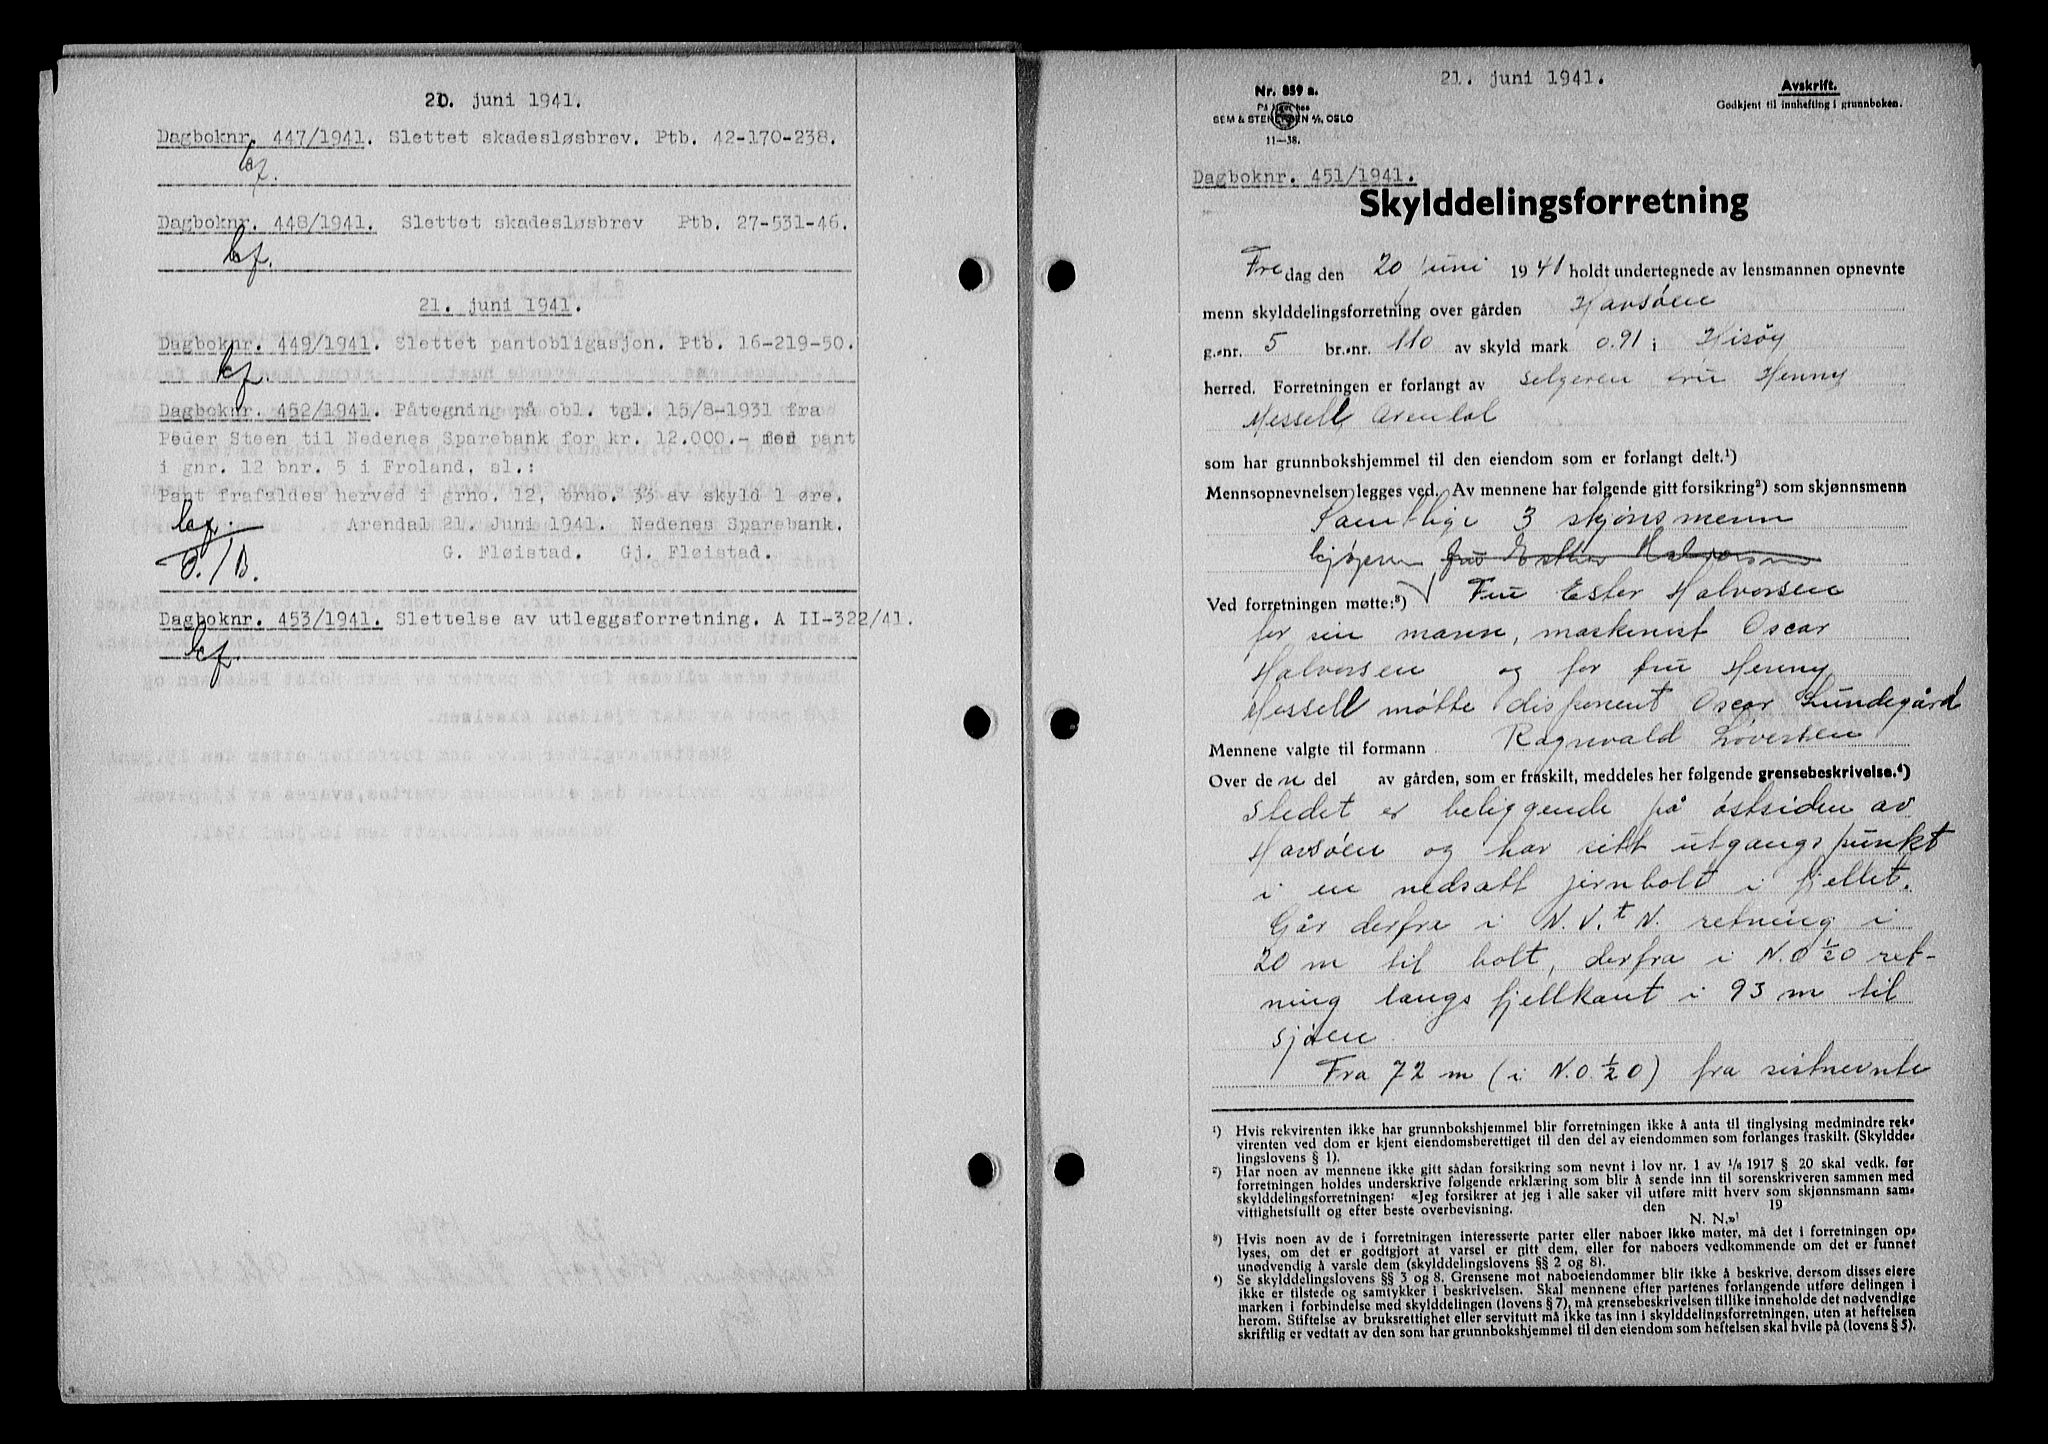 20. juni 1941.
Dagboknr. 447/1941. Slettet skadesløsbrev. Ptb. 42-170-238.
Dagboknr. 448/1941. Slettet skadesløsbrev Ptb. 27-531-46.
21. juni 1941.
Dagboknr. 449/1941. Slettet pantobligasjon. Ptb. 16-219-50.
Dagboknr. 452/1941. Påtegning på obl. tgl. 15/8-1931 fra
Peder Steen til Nedenes Sparebank for kr. 12.000.- med pant
i gnr. 12 bnr. 5 i Froland, sl.:
Pant frafaldes herved i grno. 12, brno. 33 av skyld 1 øre.
Arendal 21. Juni 1941. Nedenes Sparebank.
G. Fløistad. Gj. Fløistad.
O./B.
Dagboknr. 453/1941. Slettelse av utleggsforretning. A II-322/41.
21. juni 1941.
Nr. 859 a.
SEM & STENERSEN A/S, OSLO
11—38.
Avskrift.
Godkjent til innhefting i grunnboken.
Dagboknr. 451/1941.
Skylddelingsforretning
Fredag den 20 juni 1941 holdt undertegnede av lensmannen opnevnte
menn skylddelingsforretning over gården Havsøen
g.-nr. 5 br.-nr. 110 av skyld mark 0.91 i Hisøy
herred. Forretningen er forlangt av selgeren fru Henny
Messell, Arendal
som har grunnbokshjemmel til den eiendom som er forlangt delt.¹)
Mennsopnevnelsen legges ved. Av mennene har følgende gitt forsikring²) som skjønnsmenn
Samtlige 3 skjønsmenn
kjøperen, fru Esther Halvorsen
Ved forretningen møtte:³) Fru Ester Halvorsen
for sin mann, maskinist Oscar
Halvorsen og for fru Henny
Messell møtte disponent Oscar Lundegård
Mennene valgte til formann Ragnvald Løversen
Over den del av gården, som er fraskilt, meddeles her følgende grensebeskrivelse.⁴)
Stedet er beliggende på østsiden av
Havsøen og har sitt utgangspunkt
i en nedsatt jernbolt i fjellet.
Går derfra i N.V.t N. retning i
20 m til bolt, derfra i N.O ½ O ret-
ning langs fjellkant i 93 m til
sjøen.
Fra 72 m (i N.O. ½ O) fra sistnevnte
¹) Hvis rekvirenten ikke har grunnbokshjemmel blir forretningen ikke å anta til tinglysing medmindre rek-
virenten ved dom er kjent eiendomsberettiget til den del av eiendommen som forlanges fraskilt. (Skyldde-
lingslovens § 1).
²) Har noen av mennene ikke gitt sådan forsikring som nevnt i lov nr. 1 av 1/6 1917 § 20 skal vedk. før
forretningen holdes underskrive følgende erklæring som blir å sende inn til sorenskriveren sammen med
skylddelingsforretningen: «Jeg forsikrer at jeg i alle saker vil utføre mitt hverv som skjønnsmann sam-
vittighetsfullt og efter beste overbevisning. den 19
N. N.»
³) Hvis noen av de i forretningen interesserte parter eller naboer ikke møter, må det i forretningen op-
lyses, om det er godtgjort at varsel er gitt dem, eller for naboers vedkommende om det er funnet
unødvendig å varsle dem (skylddelingslovens §§ 2 og 8).
⁴) Se skylddelingslovens §§ 3 og 8. Grensene mot naboeiendommer blir ikke å beskrive, dersom disses eiere
ikke er tilstede og samtykker i beskrivelsen. Skal mennene efter partenes forlangende utføre delingen i
marken i forbindelse med skylddelingen (lovens § 7), må grensebeskrivelsen tillike inneholde det nødvendige
herom. Stiftelse av bruksrettighet eller servitutt må ikke tas inn i skylddelingsforretningen, uten at heftelsen
skriftlig er vedtatt av den som har grunnbokshjemmel til den eiendom som heftelsen skal hvile på (lovens § 5).